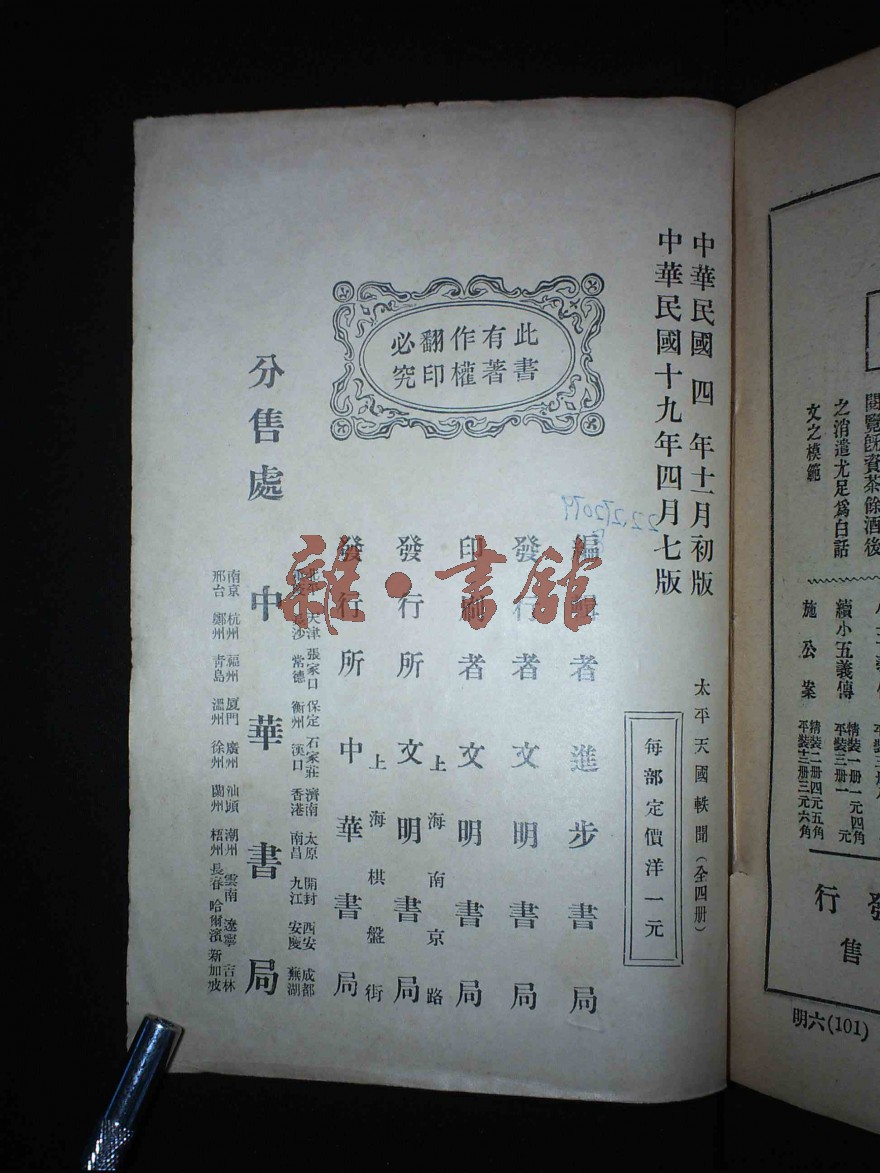 中華民國四年十一月初版
中華民國十九年四月七版
太平天國軼聞（全四册）
每部定價洋一元
此書
有著
作權
翻印
必究
編輯者 進步書局
發行者 文明書局
印刷者 文明書局
上海南京路
發行所 文明書局
上海棋盤街
發行所 中華書局
北平 天津 張家口 保定 石家莊 濟南 太原 開封 西安 成都
長沙 常德 衡州 漢口 香港 南昌 九江 安慶 蕪湖
分售處 中華書局
南京 杭州 福州 厦門 廣州 汕頭 潮州 雲南 遼寧 吉林
邢台 鄭州 青島 溫州 徐州 蘭州 梧州 長春 哈爾濱 新加坡
雜·書館
閱覽旣賫茶餘酒後
之消遣尤足爲白話
文之模範
續小五義傳 精裝一册一元四角 平裝三册一元
施公案 精裝二册四元五角 平裝十二册三元六角
發
行
售
明六(101)